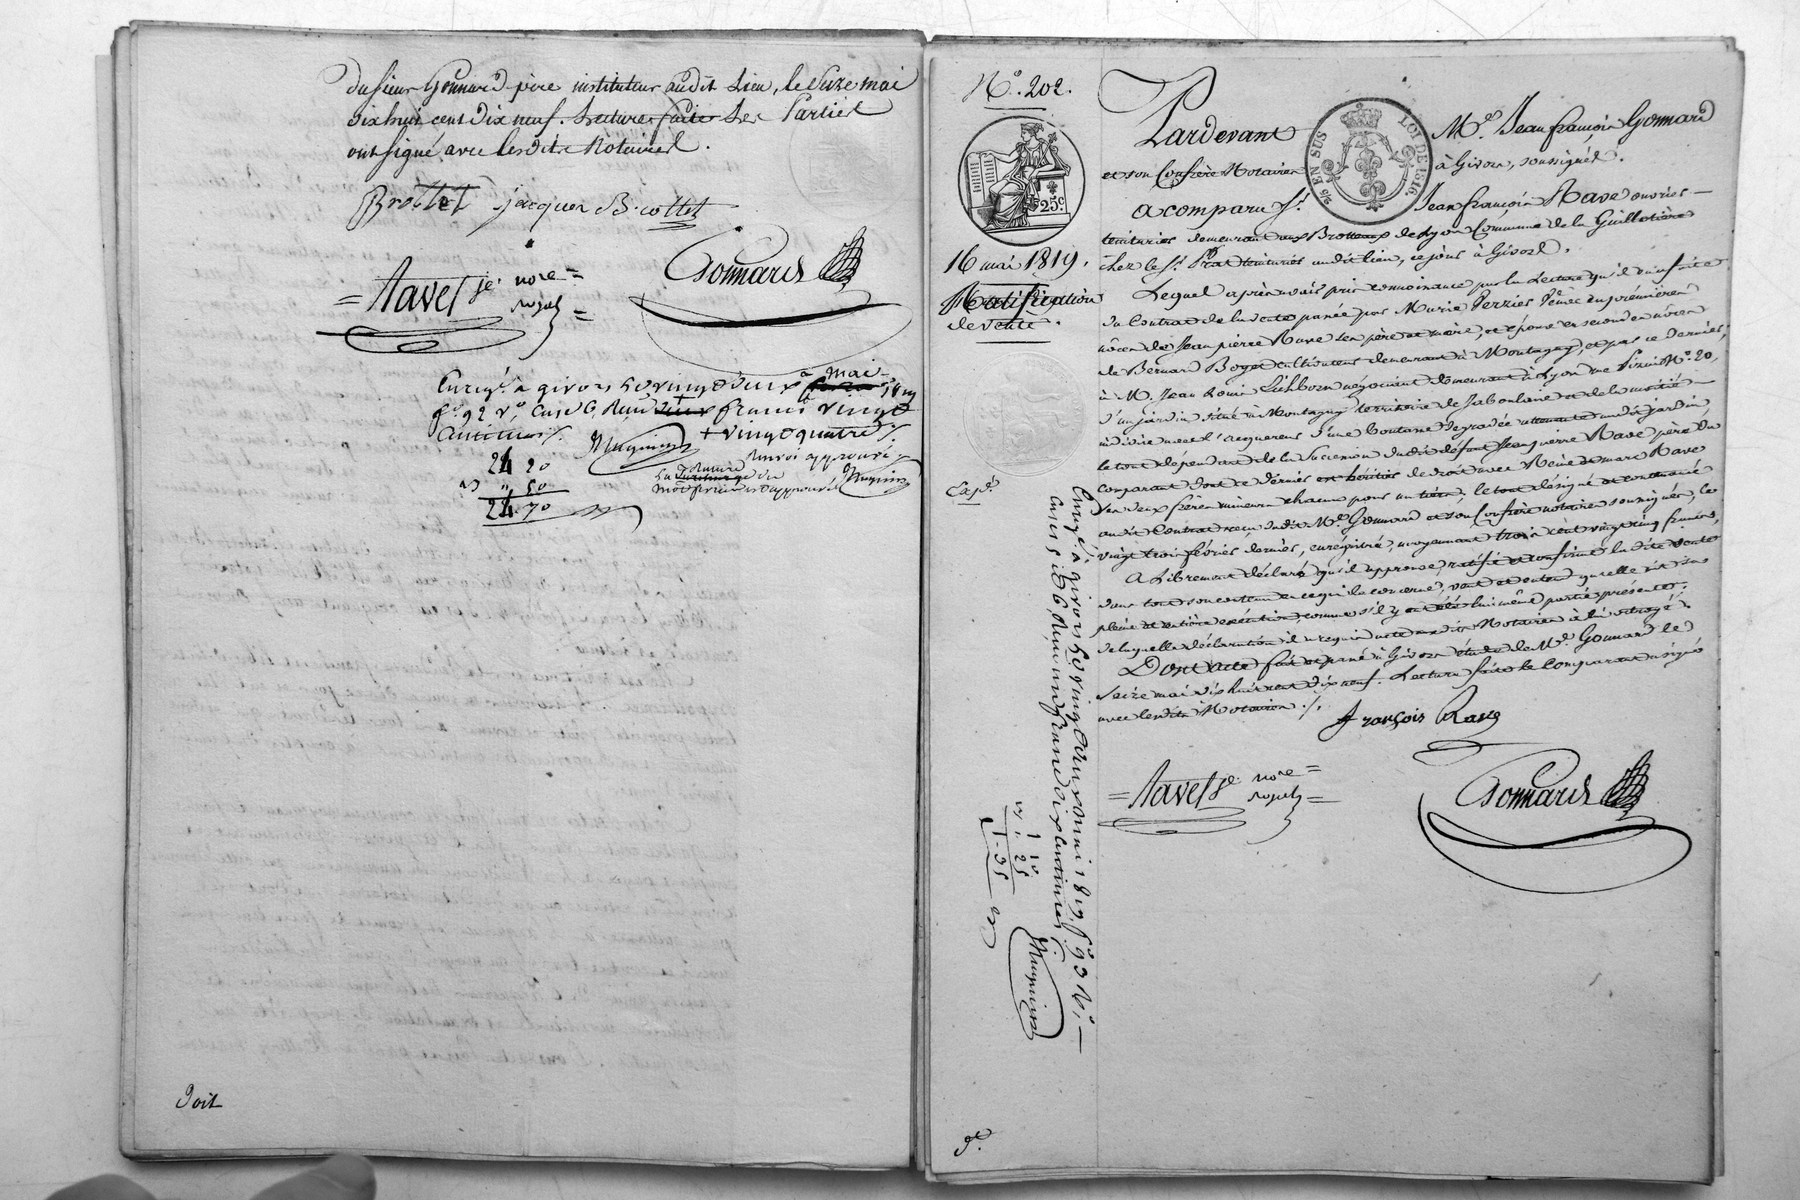 du sieur Gonnard père instituteur audit Lieu, le seize mai
dix huit cent dix neuf. Lecture faite Les Parties
ont signé avec lesdits Notaires.
Brottet jacques B. collet
Navel je. nore royal
Gonnard
Enregé. à givors le vingt deux mai 1819
fo. 92 vo. Case 6, Reçu francs vingt
centimes
+ vingt quatre
Renvoi approuvé
La rature du
mot février est approuvée
Mugnier
24 20
" 50
24. 70
Doit
No. 202.
25c.
16 mai 1819.
Ratification
de vente.
Cap.
Pardevant Me. Jean françois Gonnard
et son Confrère Notaires à Givors, soussignés.
25 EN SUS
LOI DE 1816.
a comparu Sr. Jean françois Rave ouvrier
teinturier demeurant aux Brotteaux de Lyon Commune de la Guillotière
chez le Sr. Prat teinturier audit lieu, ce jour à Givors.
Lequel après avoir pris connoissance par la Lecture qu'il en a faite
du Contrat de la vente passée par Marie Perzier Veuve en premières
nôces de Jean pierre Rave ses père et mère, et épouse en secondes nôces
de Bernard Boyet cultivateur demeurant à Montagny, et par ce dernier,
à M. Jean Louis Lichborn négociant demeurant à Lyon rue No. 20,
d'un jardin situé à Montagny territoire de Jaboulane et de la moitié
indivise avec l'acquereur d'une boutasse dégradée attenante audit jardin,
le tout dépendant de la Succession dudit défunt Jean pierre Rave père du
comparant dont ce dernier est héritier de droit avec Rene et marc Rave
ses deux frères mineurs chacun pour un tiers; le tout désigné et contenu
audit Contrat reçu dudit Me. Gonnard et son Confrère notaires soussignés, le
vingt trois février dernier, enregistré, moyennant trois cent vingt cinq francs,
A Librement déclaré qu'il approuve, ratifie et confirme la dite vente
dans tout son contenu en ce qui le concerne, veut et entend qu'elle ait sa
pleine et entière exécution, comme s'il y eut été lui même partie présente;
de laquelle déclaration il a requis acte auxdits Notaires à lui octroyé.
Dont acte fait et passé à Givors étude de Me. Gonnard le
seize mai dix huit cent dix neuf. Lecture faite le Comparant a signé
avec lesdits Notaires ./.
françois Rave
Navel je. nore royal
Gonnard
Enregé. à givors le vingt deux mai 1819, fo. 93 Vo.
Case 5 et 6, Reçu un franc dix centimes
Mugnier
1 10
25
1. 35